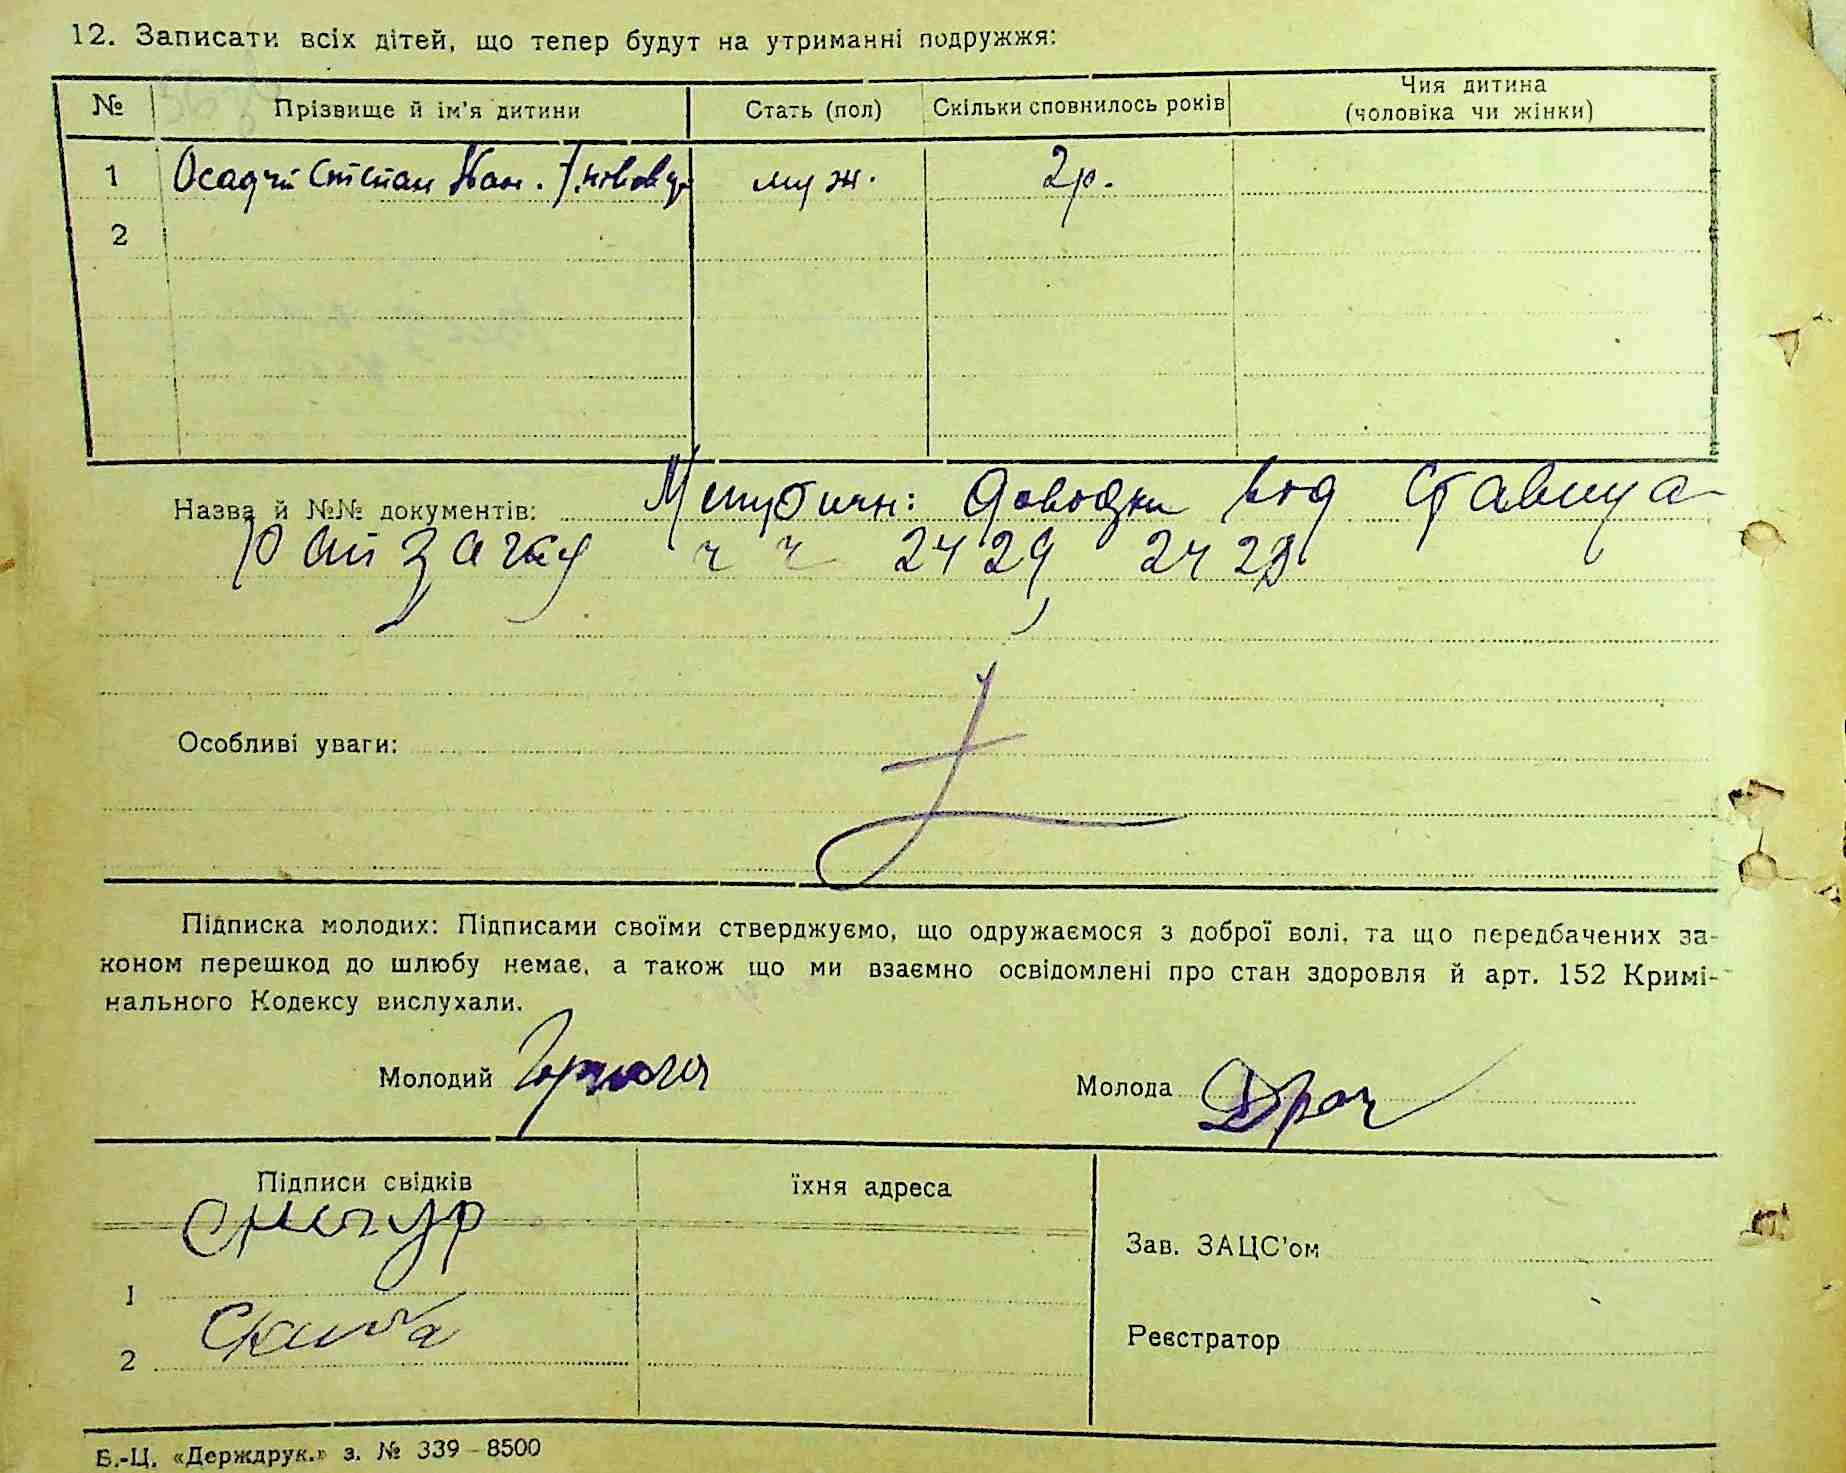 12. Записати всіх дітей, що тепер будут на утриманні подружжя:
№ Прізвище й ім'я дитини Стать (пол) Скільки сповнилось років Чия дитина (чоловіка чи жінки)
1 Осадчй Степан муж. 2р.
2
Назва й №№ документів: Довідки від Ставища
ч ч 2429, 2428
Особливі уваги:
Підписка молодих: Підписами своїми стверджуємо, що одружаємося з доброї волі, та що передбачених за-
коном перешкод до шлюбу немає, а також що ми взаємно освідомлені про стан здоровля й арт. 152 Кримі-
нального Кодексу вислухали.
Молодий Молода Драч
Підписи свідків їхня адреса
Снігур
Зав. ЗАЦС'ом
1
Скиба
Реєстратор
2
Б.-Ц. «Держдрук.» з. № 339—8500